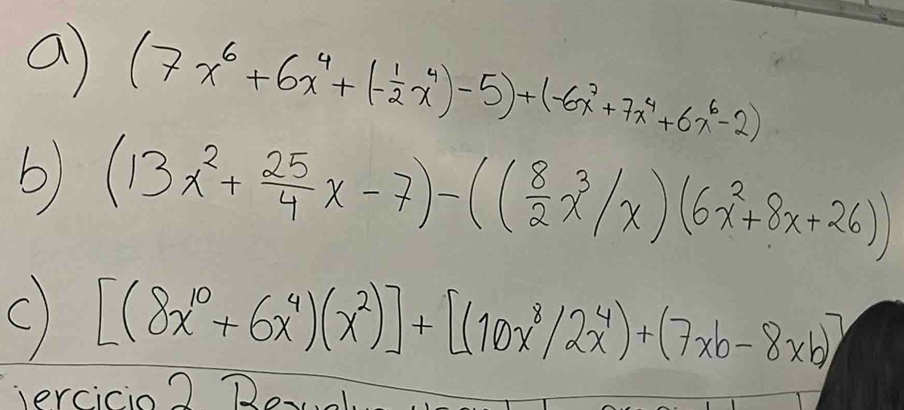 a) (7x⁶ + 6x⁴ + (-½x⁴) - 5) + (-6x⁷ + 7x⁴ + 6x⁶ - 2)
b) (13x² + 25/4 x - 7) - ((8/2 x³ / x)(6x² + 8x + 26))
c) [(8x¹⁰ + 6x⁴)(x²)] + [(10x⁸ / 2x⁴) + (7xb - 8xb)]
jercicio 2